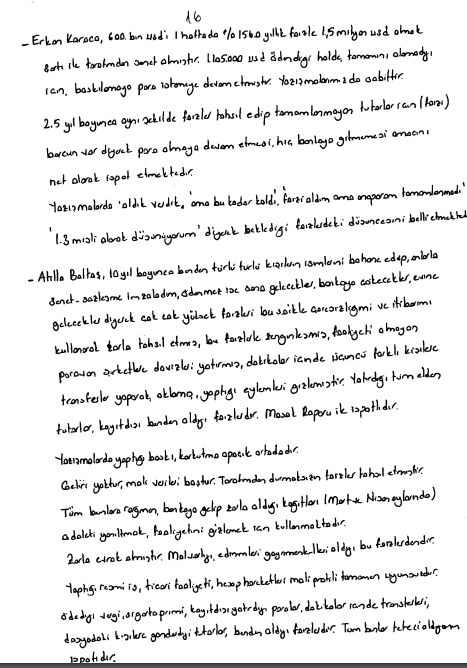 16
- Erkan Karaca, 600 bin usd'i 1 haftada %1560 yıllık faizle 1,5 milyon usd olarak
şartı ile tarafımdan senet almıştır. 1.105.000 usd ödendiği halde, tamamını alamadığı
için, baskılamaya para istemeye devam etmiştir. Yazışmalarımızda sabittir.
2.5 yıl boyunca aynı şekilde faizler tahsil edip tamamlanmayan tutarlar için (faizi)
borcun var diyerek para almaya devam etmesi, hiç bankaya gitmemesi amacını
net olarak ispat etmektedir.
Yazışmalarda 'aldık verdik', 'ama bu kadar kaldı', 'faizi aldım ama anaparam tamamlanmadı'
'1.3 misli olarak düşünüyorum' diyerek beklediği faizlerdeki düşüncesini belli etmekted
- Atilla Baltaş, 10 yıl boyunca benden türlü türlü kişilerin isimlerini bahane edip, onlarla
senet-sözleşme imzaladım, ödenmez ise sana gelecekler, bankaya çökecekler, evine
gelecekler diyerek çok çok yüksek faizleri bu saikle çaresizliğimi ve itibarımı
kullanarak zorla tahsil etmiş, bu faizlerle zenginleşmiş, faaliyeti olmayan
paravan şirketlere dövizleri yatırmış, dakikalar içinde üçüncü farklı kişilere
transferler yaparak, aklama, yaptığı eylemleri gizlemiştir. Yatırdığı tüm elden
tutarlar, kayıtdışı benden aldığı faizlerdir. Masak Raporu ile ispatlıdır.
Yazışmalarda yaptığı baskı, korkutma apaçık ortadadır.
Geliri yoktur, mali verileri boştur. Tarafımdan durmaksızın faizler tahsil etmiştir.
Tüm bunlara rağmen, bankaya gelip zorla aldığı kağıtları (Mart ve Nisan aylarında)
adaleti yanıltmak, faaliyetini gizlemek için kullanmaktadır.
Zorla evrak almıştır. Malvarlığı, edinimleri gayrimenkulleri aldığı bu faizlerdendir.
Yaptığı resmi iş, ticari faaliyeti, hesap hareketleri mali profili tamamen uyumsuzdur.
ödediği vergi, sigorta primi, kayıtdışı yatırdığı paralar, dakikalar içinde transferleri,
dosyadaki kişilere gönderdiği tutarlar, benden aldığı faizlerdir. Tüm bunlar tefeci olduğunun
ispatıdır.